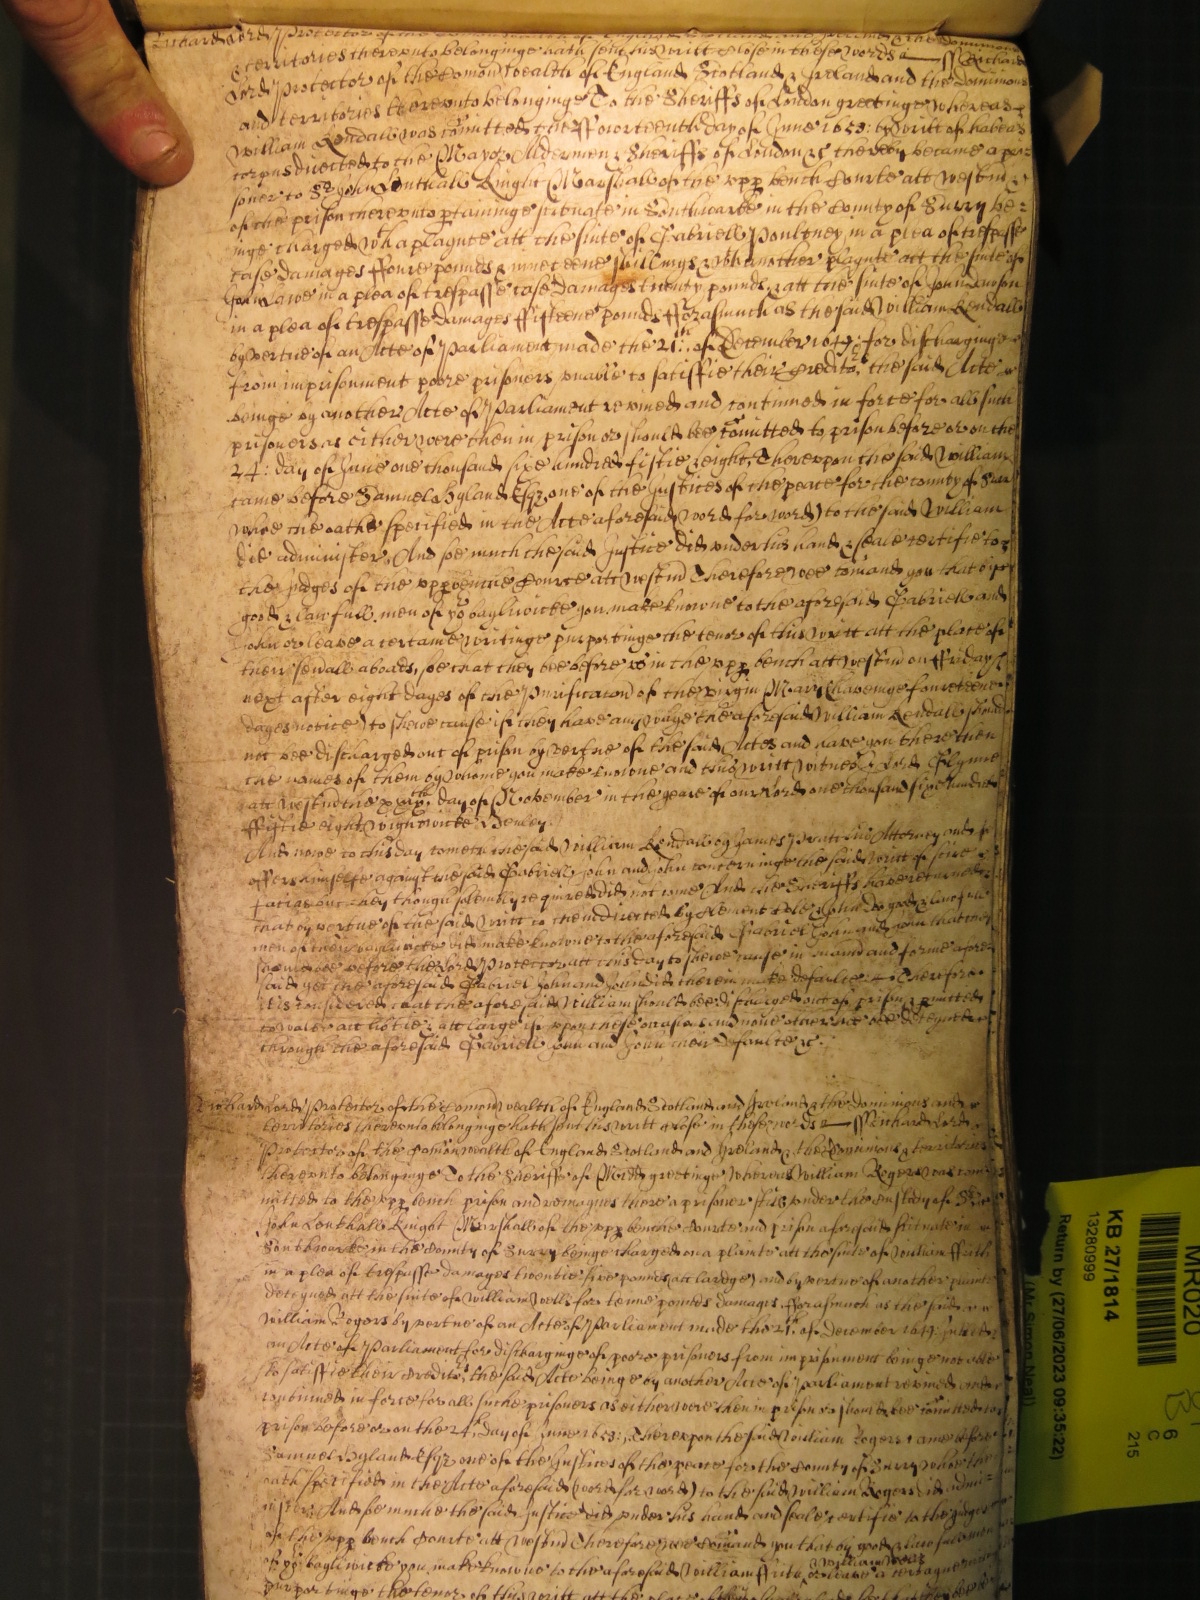 Richard Lord Protector of the
& territories thereunto belonginge hath sent his writt close in these words ss Richard
Lord Protector of the Comon wealth of England Scotland & Ireland and the dominions
and territories thereunto belonginge To the Sheriffs of London greetinge Whereas
William Kendall was comitted the ffowerteenth day of June 1658: by writt of habeas
corpus directed to the Mayor Aldermen & Sheriffs of London & thereby became a pri
soner to Sr John Lenthall Knight Marshall of the upp bench Courte att Westm &
of the prison thereunto ptaininge scituate in Southwarke in the County of Surry be=
inge charged wth a playnte att the suite of Gabriell Poultney in a plea of trespasse
case damages ffoure pounds & nineteene shillings & wth another playnte att the suite of
John in a plea of trespasse case damages twenty pounds & att the suite of John
in a plea of trespasse damages ffifteene pounds fforasmuch as the said William Kendall
by vertue of an Acte of Parliament made the 21th of December 1649: for discharginge
from imprisonment poore prisoners unable to satisfie their Creditors the said Acte
beinge by another Acte of Parliament revived and continued in force for all such
prisoners as either were then in prison or should bee comitted to prison before or on the
24: day of June one thousand sixe hundred fiftie & eight, Thereupon the said William
came before Samuel Hyland Esqr one of the Justices of the peace for the county of Surr
whoe the oathe specified in the Acte aforesaid (word for word) to the said William
did administer, And soe much the said Justice did under his hand & seale certifie to
the Judges of the upp benche Courte att Westm Therefore wee comand you that by
good & lawfull men of yor bayliwicke you make knowne to the aforesaid Gabriell and
John or leave a certaine writinge purportinge the tenor of this writt att the place of
their severall aboads, soe that they bee before us in the upp bench att Westm on ffriday
next after eight dayes of the Purificacon of the virgin Mary (haveinge foureteene
dayes notice) to shewe cause if they have any whye the aforesaid William Kendall should
not bee discharged out of prison by vertue of the said Actes and have you there then
the names of them by whome you make knowne and this writt Witnes Glynne
att Westm the day of November in the yeare of our Lord one thousand sixe hundred
ffiftie eight, Wightwicke Henley.
And nowe to this day cometh the said William Kendall by James Pratt his Attorney and
offers himselfe against the said Gabriell John and John concerninge the said writt of scire
facias but they though solemnly required did not come And the Sheriffs have returned
that by vertue of the said writt to them directed by Clement Cole & John Do good & lawfull
men of their bayliwicke did make knowne to the aforesaid Gabriel John and John that they
should bee before the Lord Protector att this day to shewe cause in maner and forme afore
said yet the aforesaid Gabriel John and John did therein make defaulte Therefore
it is considered that the aforesaid William should bee discharged out of prison & pmitted
to walke att libtie & att large if upon these occasions and none other hee bee deteyned
through the aforesaid Gabriell John and John their defaulte &c.
Richard Lord Protector of the Comon wealth of England Scotland and Ireland & the dominions and
territories thereunto belonginge hath sent his writt close in these words ss Richard Lord
Protector of the Comon wealth of England Scotland and Ireland & the dominions & territories
thereunto belonginge To the Sheriffe of Midd greetinge Whereas William Rogers was com
mitted to the upp bench prison and remaynes there a prisoner still under the custody of Sr
John Lenthall Knight Marshall of the upp benche Courte and prison aforesaid scituate in
Southwarke in the County of Surry beinge charged on a plainte att the suite of William ffrith
in a plea of trespasse damages twentie five pounds att lardge) and by vertue of another plainte
deteyned att the suite of William Wells for tenne pounds damages, fforasmuch as the said
William Rogers by vertue of an Acte of Parliament made the 21th of December 1649 Intitled
an Acte of Parliament for dischargings of poore prisoners from imprisonment beinge not able
to satisfie their Creditors, the said Acte beinge by another Acte of Parliament revived and
continued in force for all suche prisoners as either were then in prison or should bee comitted to
prison before or on the 24th day of June 1658: Thereupon the said William Rogers came before
Samuel Hyland Esqr one of the Justices of the peace for the County of Surry whoe the
oath specified in the Acte aforesaid (word for word) to the said William Rogers did admi
nister, And soe muche the said Justice did under his hand and seale certifie to the Judges
of the upp bench Courte att Westm Therefore wee Comand you that by good & lawfull men
of yor bayliwicke you make knowne to the aforesaid William ffrith & William Wells or leave a certayne
purportinge the tenor of this writt att the place
MR020
KB 27/1814
13280999
Return by (27/06/2023 09:35:22)
(Mr Simon Neal)
B 6
C
215